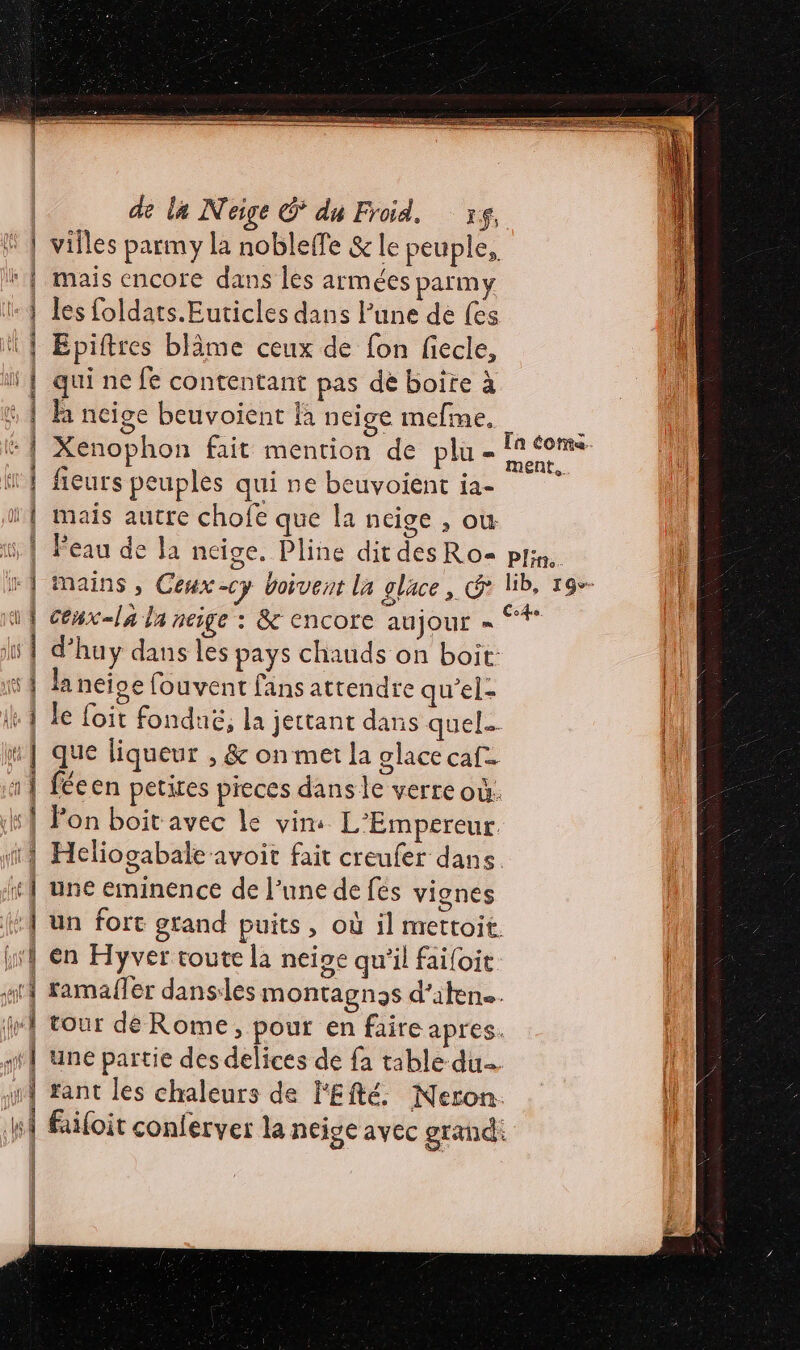 de la Neige & du Froid. 15.
villes parmy la nobleſſe & le peuple,
mais encore dans les armées parmy
les ſoldats. Euticles dans l'une de ſes
Epiſtres blâme ceux de ſon ſiecle,
qui ne ſe contentant pas de boire à
la neige beuvoient la neige meſme.
Xenophon fait mention de plu-
ſieurs peuples qui ne beuvoient ia-
mais autre choſe que la neige, ou
l'eau de la neige. Pline dit des Ro-
mains, Ceux-cy boivent la glace, &
ceux-là la neige : & encore aujour-
d'huy dans les pays chauds on boit
la neige ſouvent ſans attendre qu'el-
le ſoit fonduë, la jettant dans quel-
que liqueur, & on met la glace caſ-
ſée en petites pieces dans le verre où
l'on boit avec le vin. L'Empereur
Heliogabale avoit fait creuſer dans
une eminence de l'une de ſes vignes
un fort grand puits, où il mettoit
en Hyver toute la neige qu'il faiſoit
ramaſſer dans les montagnes d'alen-
tour de Rome, pour en faire apres
une partie des delices de ſa table du-
rant les chaleurs de l'Eſté. Neron
faiſoit conſerver la neige avec grand
In coma-
ment.
Plin.
lib. 19.
c. 4.